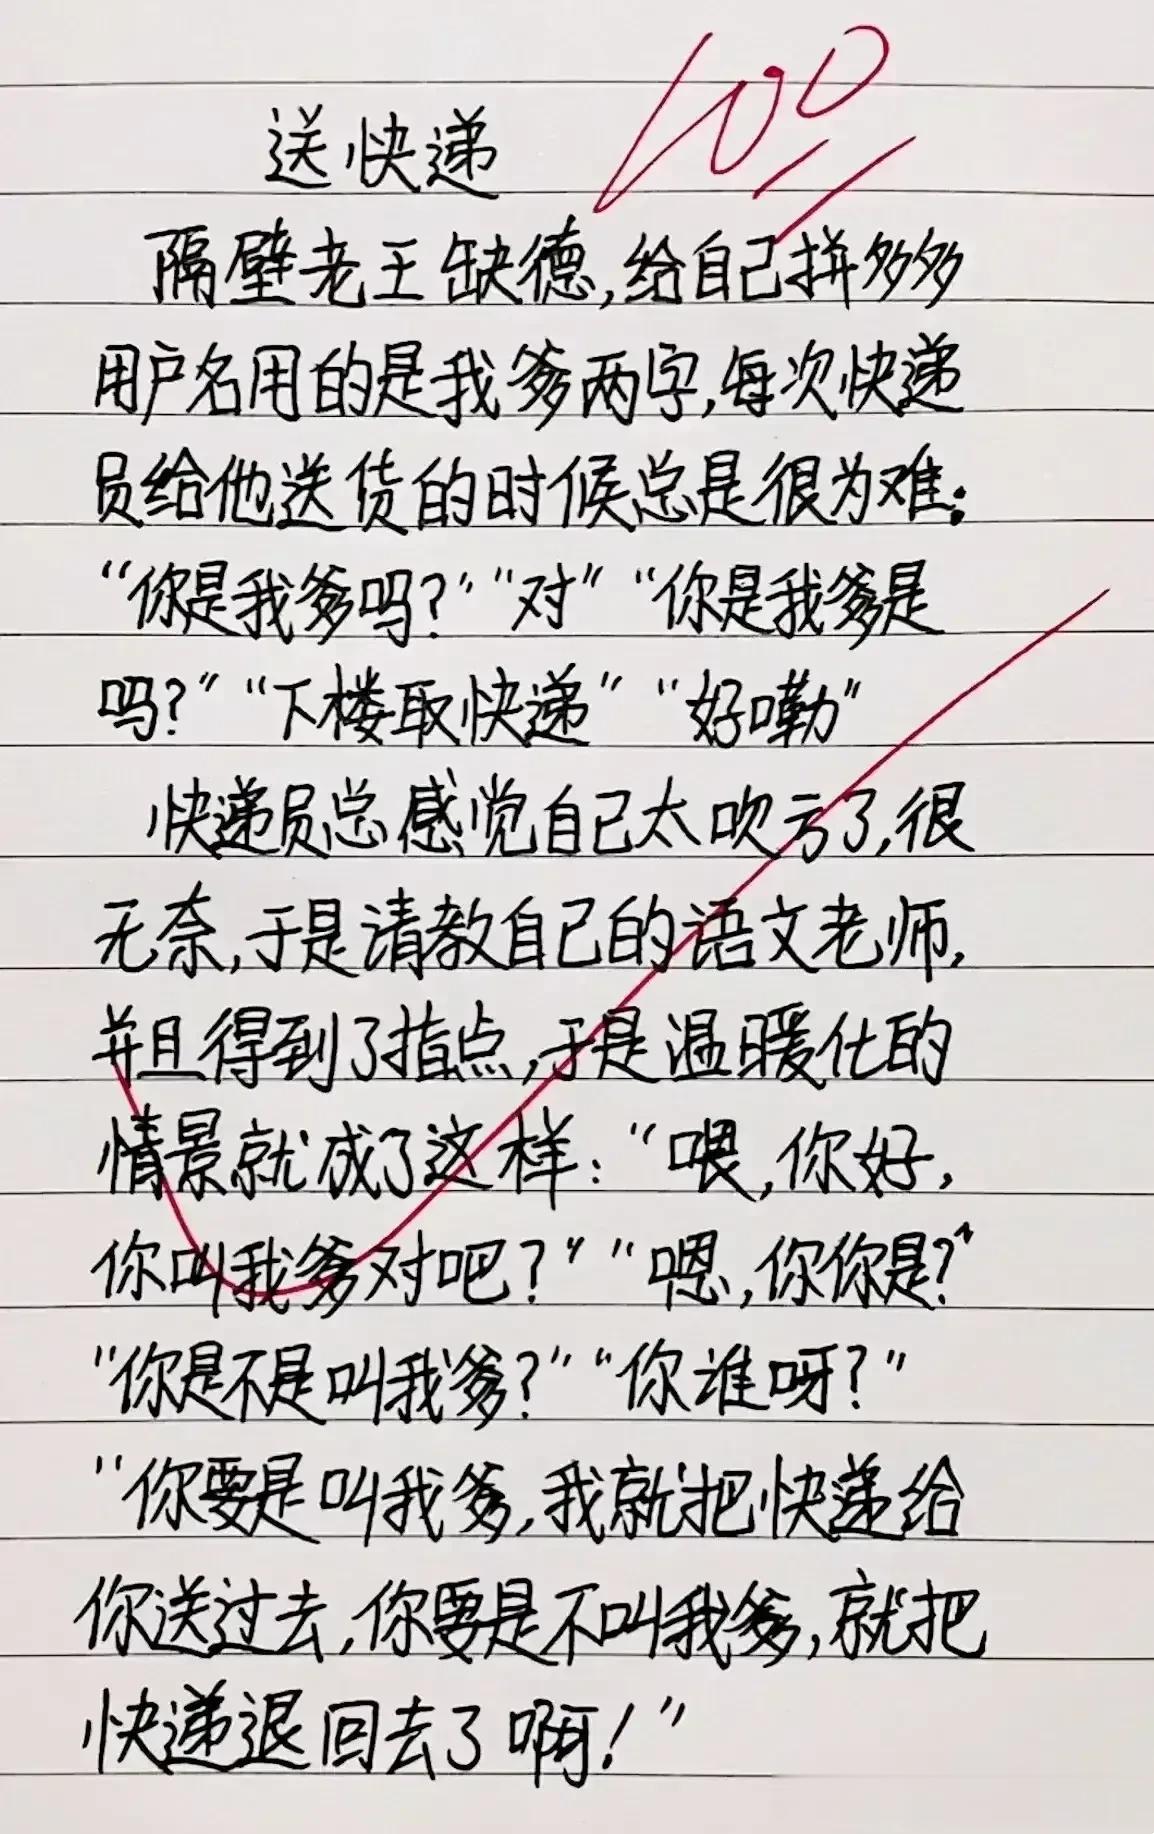 送快递
100
隔壁老王缺德,给自己拼多多
用户名用的是我爹两字,每次快递
员给他送货的时候总是很为难:
“你是我爹吗?”“对”“你是我爹是
吗?”“下楼取快递”“好嘞”
快递员总感觉自己太吹亏了,很
无奈,于是请教自己的语文老师,
并且得到了指点,于是温暖化的
情景就成了这样:“喂,你好,
你叫我爹对吧?”“嗯,你你是?”
“你是不是叫我爹?”“你谁呀?”
“你要是叫我爹,我就把快递给
你送过去,你要是不叫我爹,就把
快递退回去了啊!”